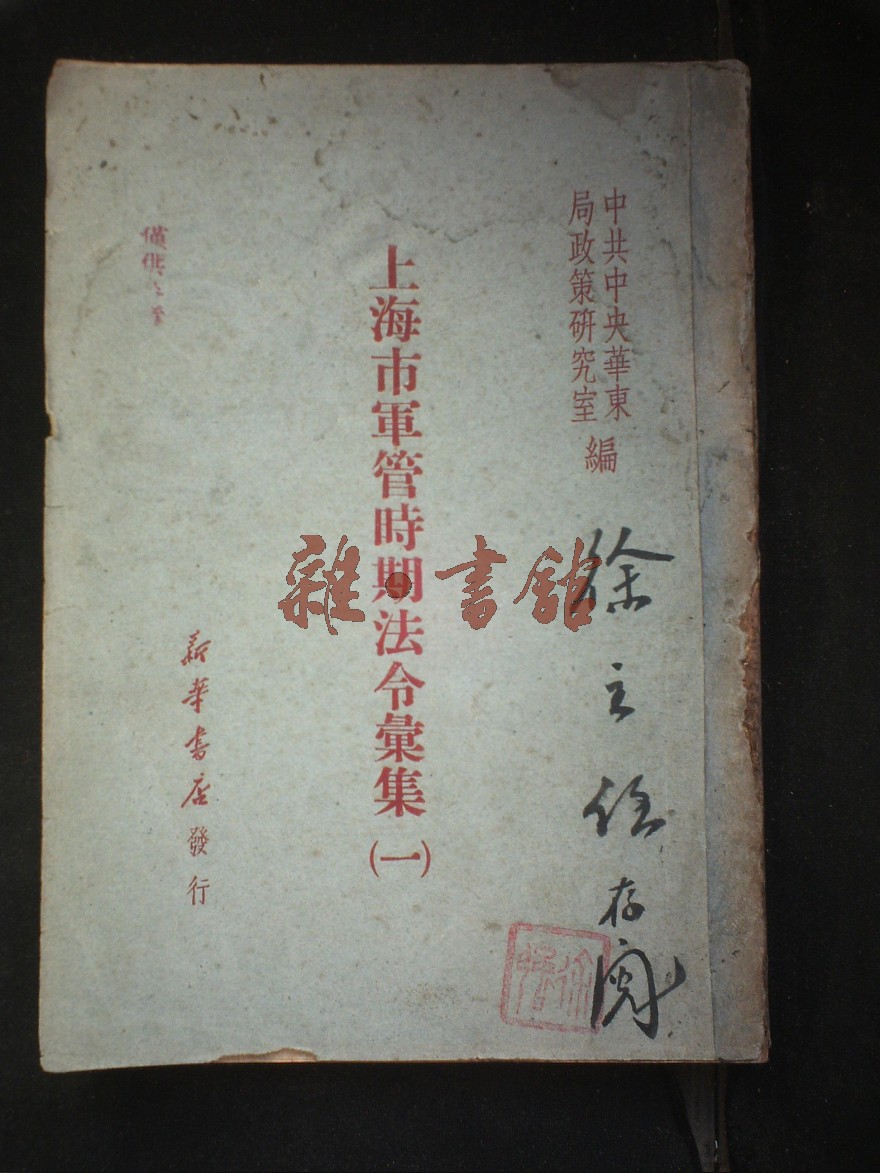 中共中央華東
局政策研究室
編
徐主任存閱
上海市軍管時期法令彙集(一)
雜·書館
僅供
新華書店發行